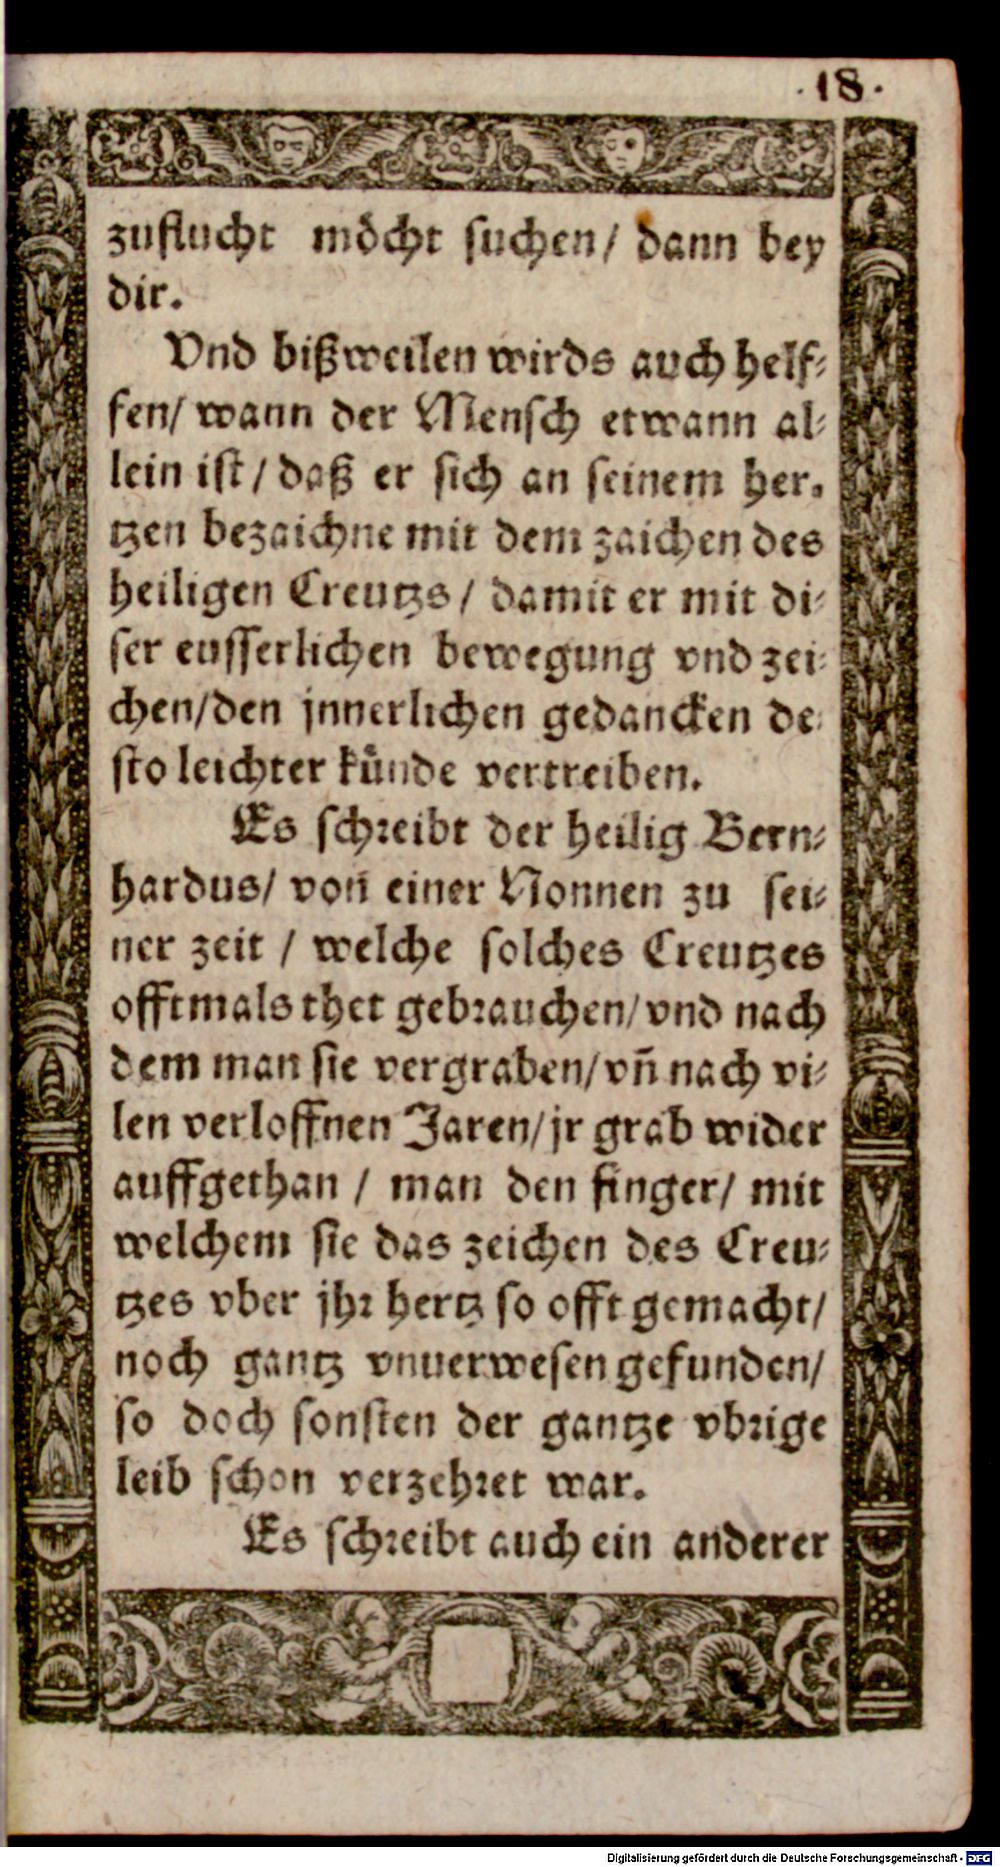 ·18·
zuflucht möcht suchen/ dann bey
dir.
Vnd bißweilen wirds auch helf-
fen/ wann der Mensch etwann al-
lein ist/ daß er sich an seinem her-
tzen bezaichne mit dem zaichen des
heiligen Creutzs/ damit er mit di-
ser eusserlichen bewegung vnd zei-
chen/den jnnerlichen gedancken de-
sto leichter künde vertreiben.
Es schreibt der heilig Bern-
hardus/ von einer Nonnen zu sei-
ner zeit / welche solches Creutzes
offtmals thet gebrauchen/ vnd nach
dem man sie vergraben/ vñ nach vi-
len verloffnen Jaren/ jr grab wider
auffgethan / man den finger/ mit
welchem sie das zeichen des Creu-
tzes vber jhr hertz so offt gemacht/
noch gantz vnuerwesen gefunden/
so doch sonsten der gantze vbrige
leib schon verzehret war.
Es schreibt auch ein anderer
Digitalisierung gefördert durch die Deutsche Forschungsgemeinschaft - DFG